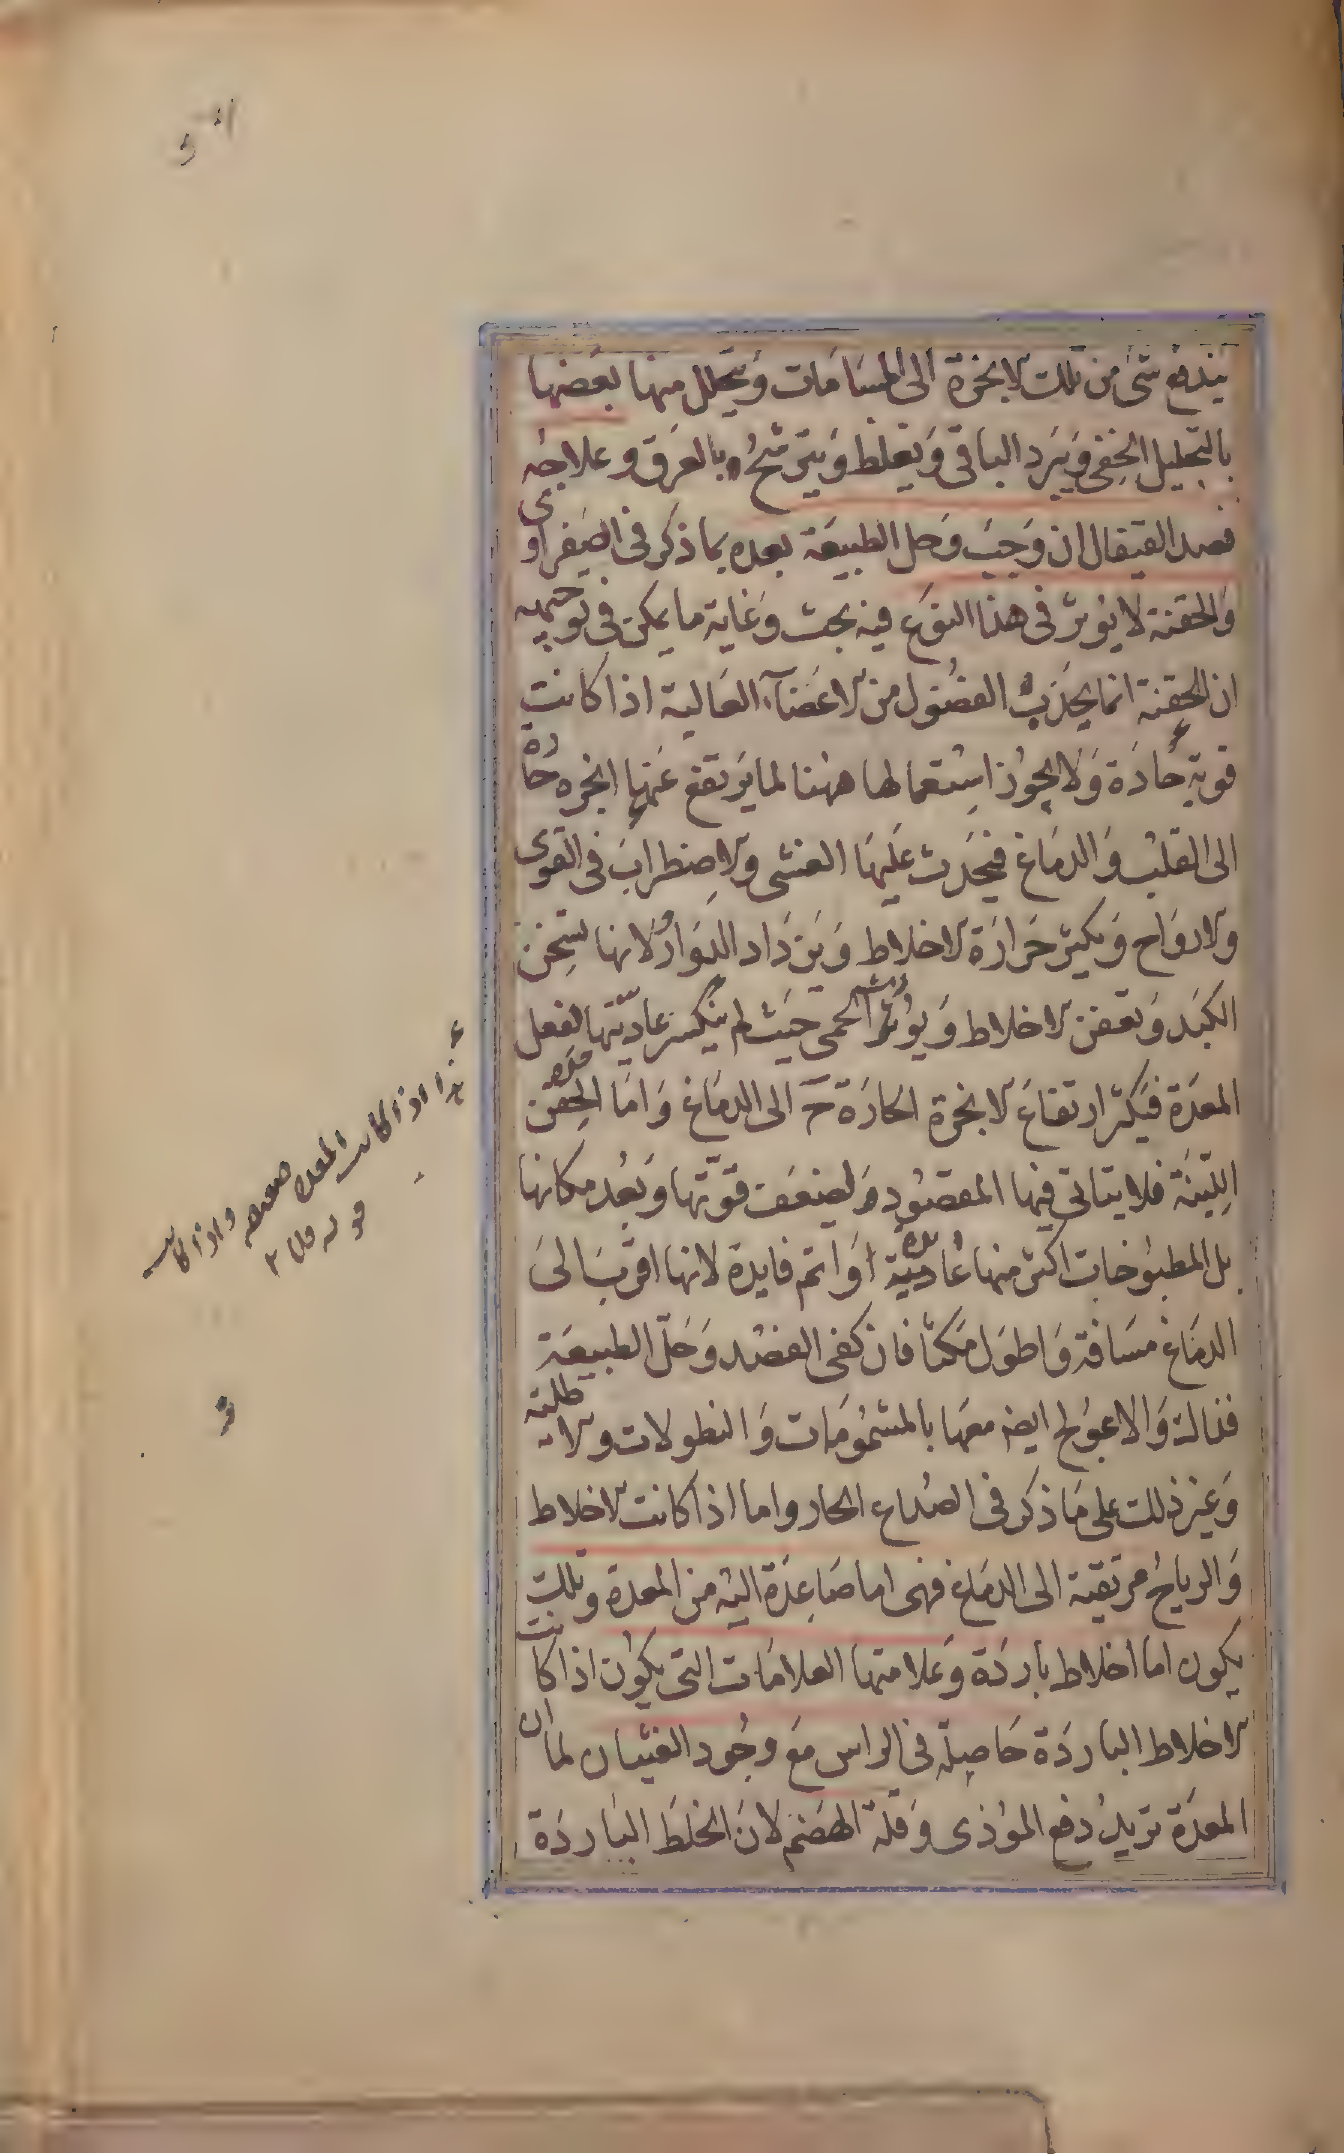 يندفع شئ من تلك الابخرة الى المسامات ويتحلل منها بعضها
بالتحليل الخفى ويبرد الباقى ويغلظ ويترشح وبالعرق وعلاجه
فصد القيفال ان وجب وحل الطبيعة بعده بما ذكر فى الصفراوى
والحقنة لا يؤثر فى هذا النوع فيه بحث وغاية ما يمكن فى توجيهه
ان الحقنة انما يجذب الفضول من الاعضآء العالية اذا كانت
قوية حادة ولا يجوز استعمالها ههنا لما يرتفع عنها ابخره حارة
الى القلب والدماغ فيحدث عليها الغشى والاضطراب فى القوى
والارواح ويكثر حرارة الاخلاط ويزداد الدوار لانها تسخن
الكبد وتعفن الاخلاط ويورث الحمى حيث لم ينكسر عاديتها لفعل
المعدة فيكثر ارتفاع الابخرة الحارة ح الى الدماغ واما الحقن
اللينة فلا يتاتى فيها المقصود لضعف قوتها وبعد مكانها
بل المطبوخات اكثر منها عادية او اتم فايدة لانها اقرب الى
الدماغ مسافة واطول مكثا فان كفى الفصد وحل الطبيعة
فذالك والا عولج ايضا معها بالمشمومات والنطولات والاطلية
وغير ذلك على ما ذكر فى الصداع الحار واما اذا كانت الاخلاط
والرياح مرتقية الى الدماغ فهى اما صاعدة اليه من المعدة وتلك
يكون اما اخلاط باردة وعلامتها العلامات التى يكون اذا كانت
الاخلاط الباردة حاصلة فى الراس مع وجود الغثيان لما ان
المعدة تريد دفع الموذى وقلة الهضم لان الخلط الباردة
هذا اذا كانت المعدة ضعيفة واذا كانت
قوية فلا